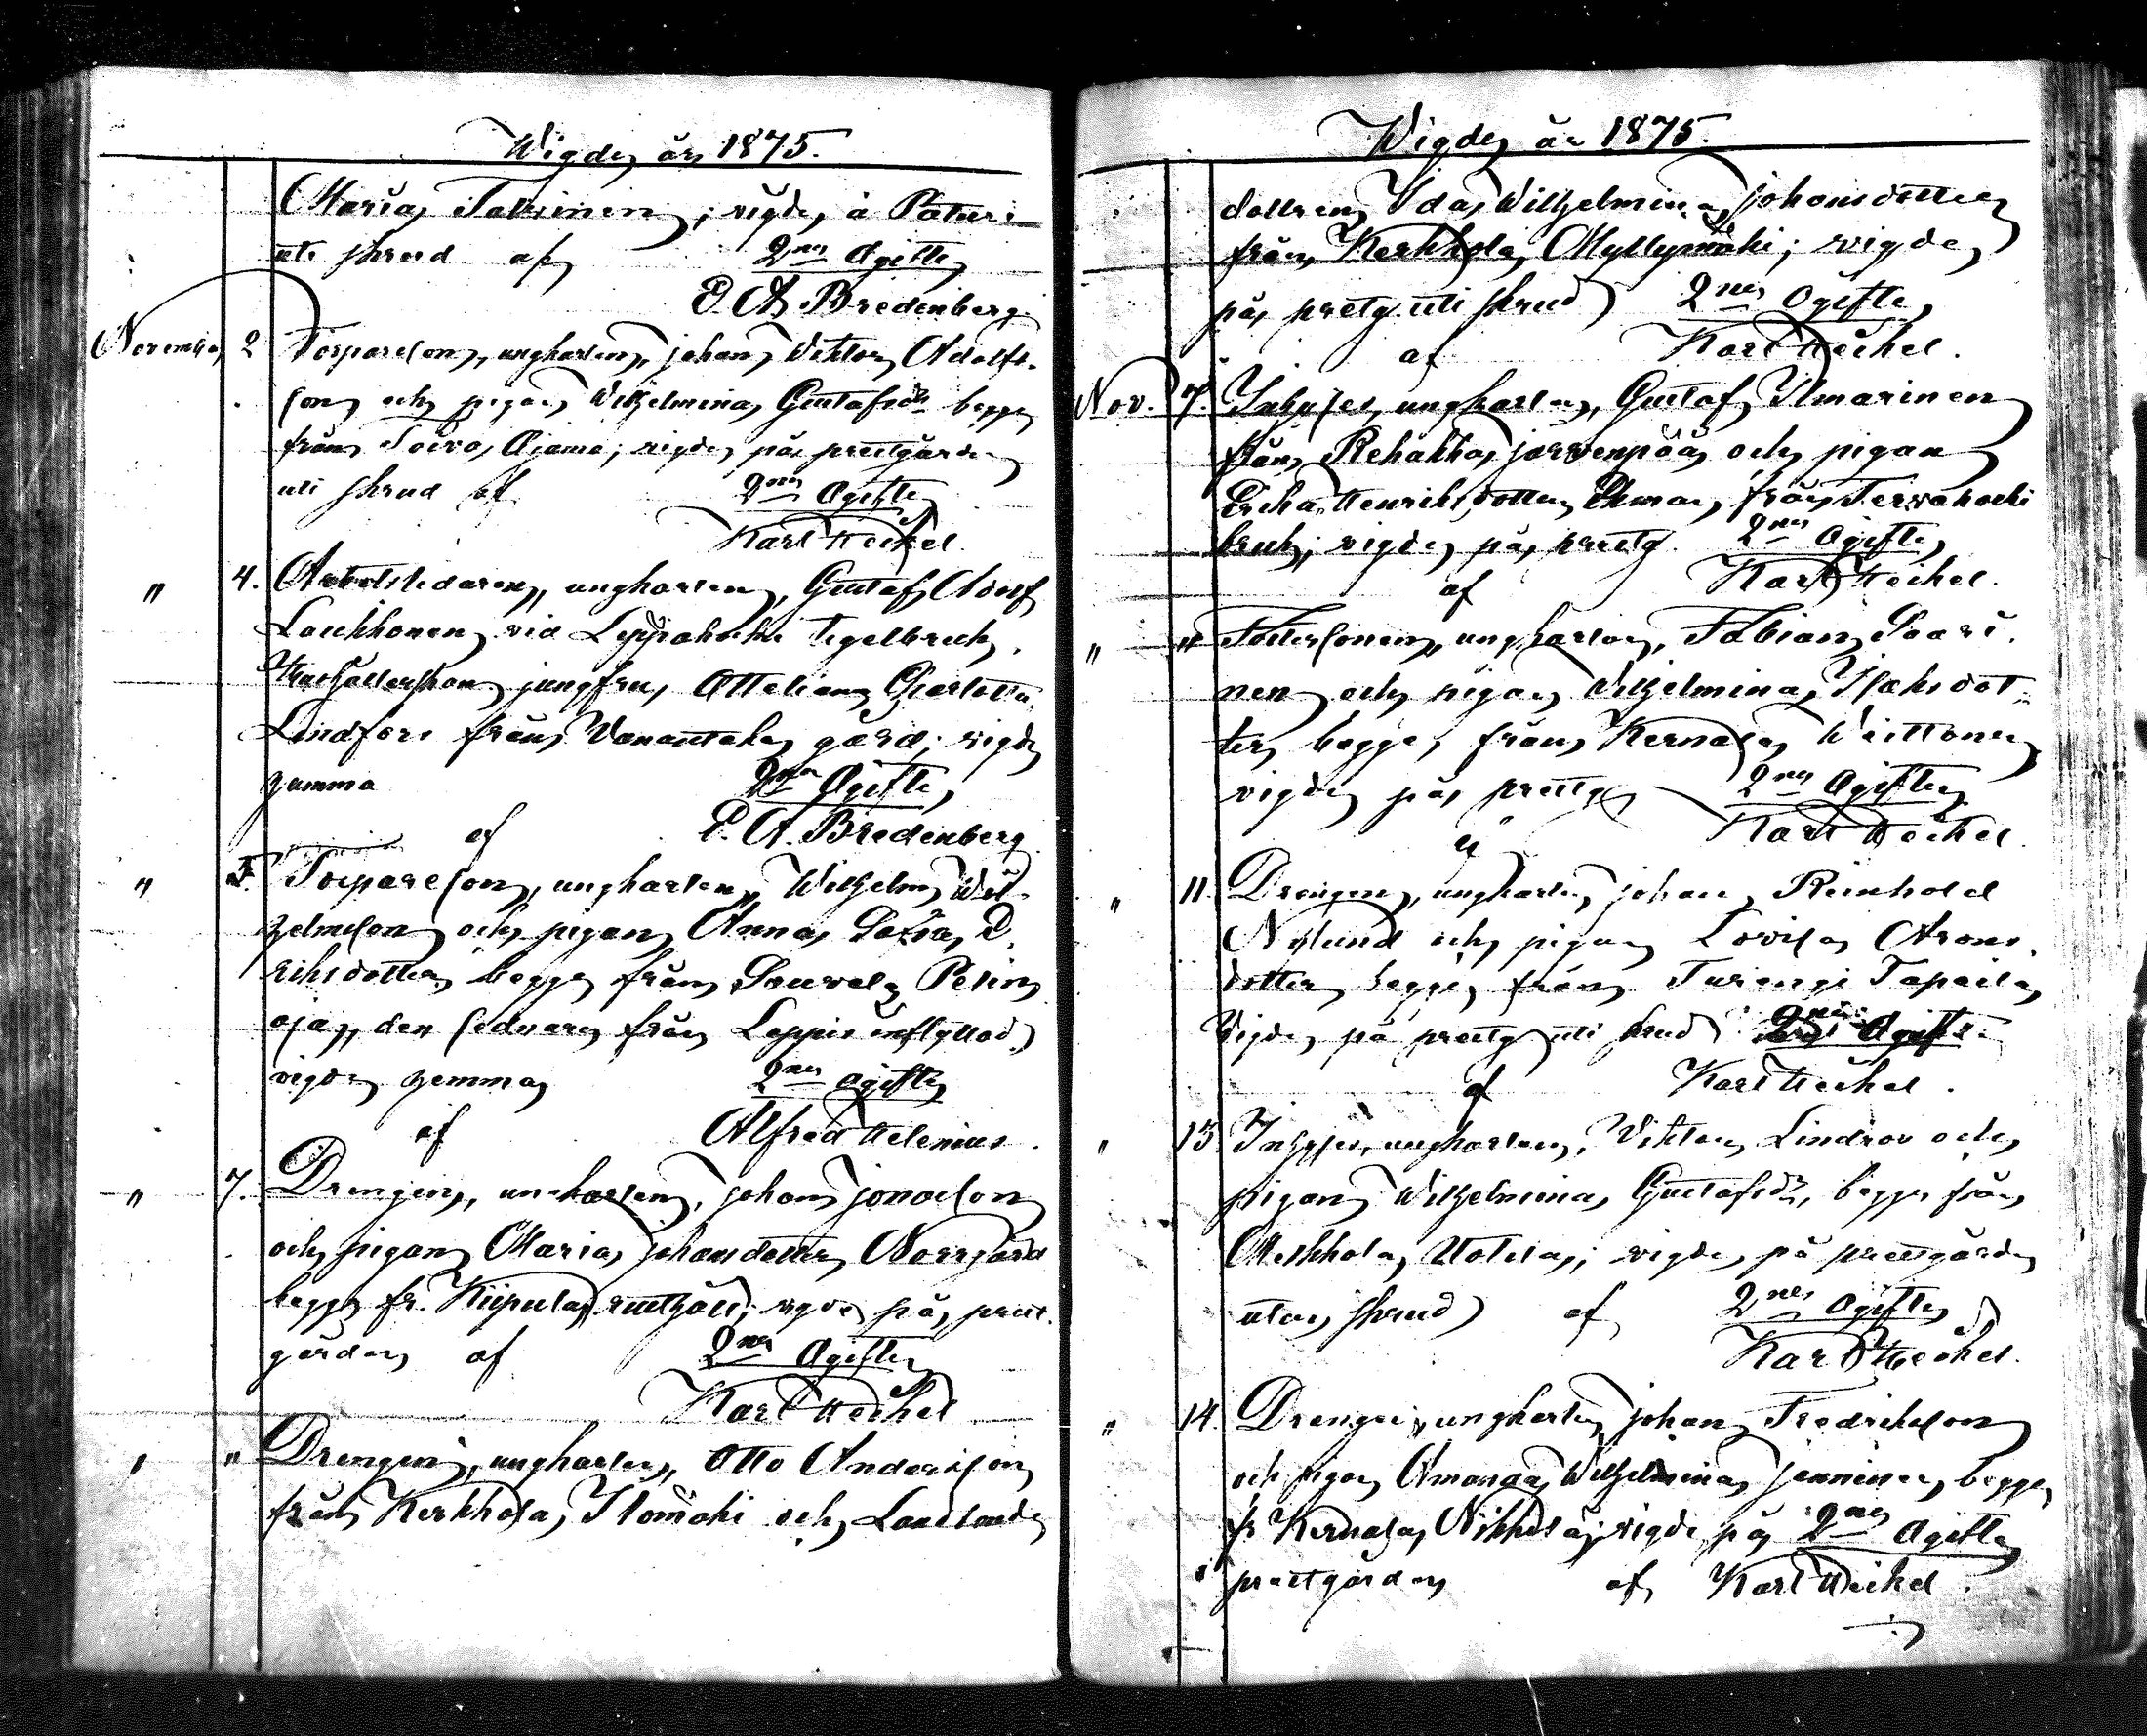 Wigde år 1875.
Maria Talkinen; vigde å Paturi
uti skrud af 2ne Ogifte
E. A. Bredenberg.
November 2 Torparesonen, ungkarlen, Johan Viktor Adolfs-
son och pigan Wilhelmina Gustafsdr begge
från Toivo, Ojama; vigde på prestgården
uti skrud af 2ne Ogifte
Karl Heikel.
" 4. Arbetsledaren, ungkarlen, Gustaf Adolf
Laukkonen vid Leppäkoski tegelbruk,
Hushållerskan jungfru, Ottiliana Charlotta
Lindfors från Vanantaka gård; vigde
hemma 2ne Ogifte
af E. A. Bredenberg
" 5. Torpareson, ungkarlen, Wilhelm Wil-
helmsson och pigan Anna Sofia E
riksdotter, begge från Sourala Pelin
oja, den sednare från Loppis inflyttad,
vigde hemma 2ne ogifte
af Alfred Helenius.
" 7. Drengen, ungkarlen, Johan Jonasson
och pigan Maria Johansdotter Norrgård
begge fr. Kiipula rusthåll; vigde på prest-
gården af 2ne Ogifte
Karl Heikel
" " Drengen, ungkarlen, Otto Andersson
från Kerkkola, Ilomäki och
Wigde år 1875.
dottren Ida Wilhelmina Johansdotter
från Kerkkola, Myllymäki; vigde
på prestg. uti skrud 2ne Ogifte
af Karl Heikel.
Nov. 7. Inhyses, ungkarlen, Gustaf Ilmarinen
från Rehakka, Järvenpää och pigan
Erika Henriksdotter Ekman, från Tervakoski
bruk; vigde på prestg. 2ne Ogifte
af Karl Heikel.
" " Fostersonen, ungkarlen, Fabian Saari-
nen och pigan Wilhelmina Isaksdot-
ter, begge från Kernala
vigde på prestg 2ne Ogifte
af Karl Heikel.
" 11. Drengen, ungkarlen Johan Reinhold
Nylund och pigan Lovisa Arons-
dotter begge från Turengi Tapaila,
Vigde på prestg uti skrud 2ne Ogifte
af Karl Heikel.
" 13 Inhyses, ungkarlen, Viktor Lindroo och
pigan Wilhelmina Gustafsdr, begge från
Mekkola, Uotila; vigde på prestgården
utan skrud af 2ne Ogifte
Karl Heikel.
" 14. Drengen, ungkarlen Johan Fredriksson
och pigan Amanda Wilhelmina Jenninen, begge
fr Kernala, Nikkilä; vigde på 2ne Ogifte
prestgården af Karl Heikel.